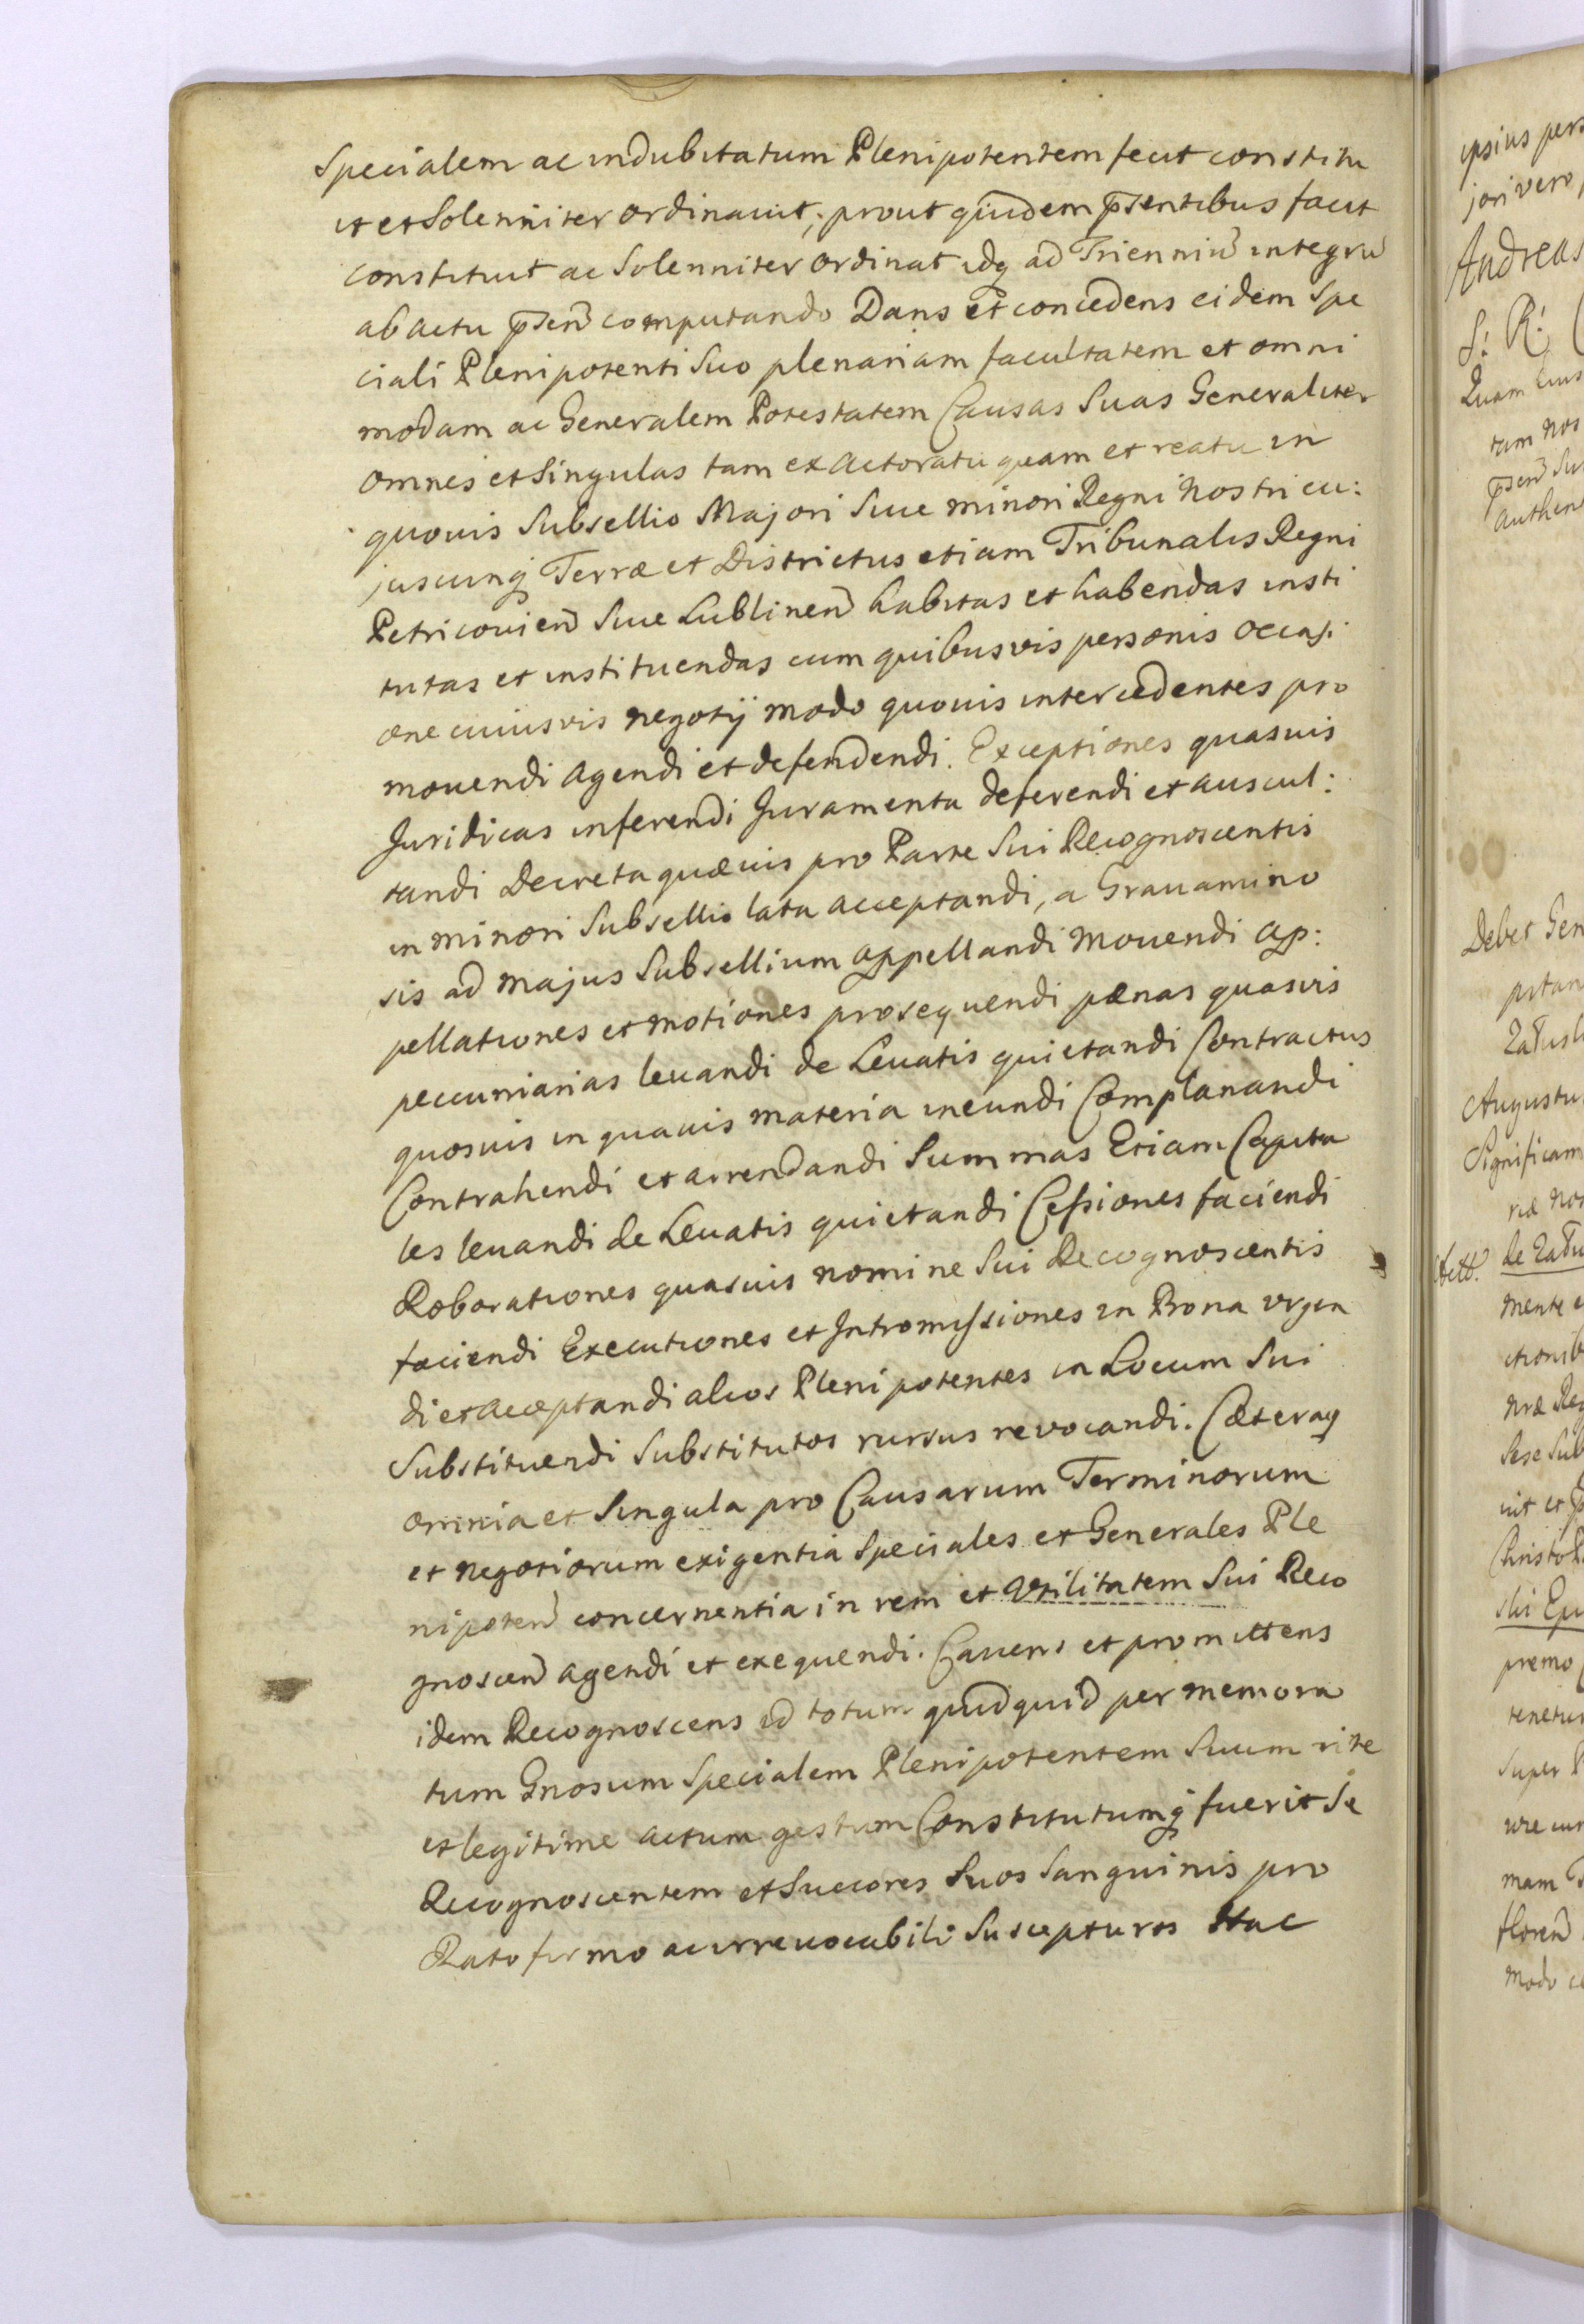 Specialem ac indubitatum Plenipotentem fecit constitu
it et Solenniter ordinavit, prout quidem p̄sentibus facit
constituit ac Solenniter ordinat idq ad Trienniu̅ integru̅
ab actu p̄sen̅ computando Dans et concedens eidem Spe
ciali Plenipotenti Suo plenariam facultatem et omni
modam ac Generalem Potestatem Causas Suas Generaliter
omnes et Singulas tam ex Actoratu quam et reatu in
quovis Subsellio Majori Siue minori Regni Nostri cu:
juscunq Terræ et Districtus etiam Tribunalis Regni
Petricovien̅ Siue Lublinen̅ habitas et habendas insti
tutas et instituendas cum quibusvis personis occasi
one cuiusvis negotij modo quovis intercedentes pro
mouendi agendi et defendendi. Exceptiones quasuis
Juridicas inferendi Juramenta deferendi et auscul:
tandi Decreta quæuis pro Parte Sui Recognoscentis
in minori Subsellio lata acceptandi, a Grauamino
sis ad majus Subsellium appellandi mouendi ap:
pellationes et motiones prosequendi pænas quasvis
peccuniarias leuandi de Leuatis quietandi Contractus
quosuis in quauis materia ineundi Complanandi
Contrahendi et arrendandi Summas Etiam Capita
les leuandi de Leuatis quietandi Cessiones faciendi
Roborationes quasuis nomine Sui Recognoscentis
faciendi Executiones et Intromissiones in Bona urgen
di et acceptandi alios Plenipotentes in Locum Sui
Substituendi Substitutos rursus revocandi. Cæteraq
omnia et Singula pro Causarum Terminorum
et negotiorum exigentia Speciales et Generales Ple
nipoten̅ concernentia in rem et Vtilitatem Sui Reco
gnoscen̅ agendi et exequendi. Cavens et promittens
idem Recognoscens id totum quidquid per memora
tum Gnosum Specialem Plenipotentem Suum rite
et legitime actum gestum Constitutumq fuerit Se
Recognoscentem et Succores Suos Sanguinis pro
Rato firmo ac irreuocabili Suscepturos Hac
ipsius pers
jori vero
Andreas
S: R:
Quam
tam nos
p̄sen̅ Su
authen
Debet Gen
Augustu
Significam
riæ nos
mente e
nræ Reg
Sese Sub
premo
tenetur
Super
mam
floren̅
modo